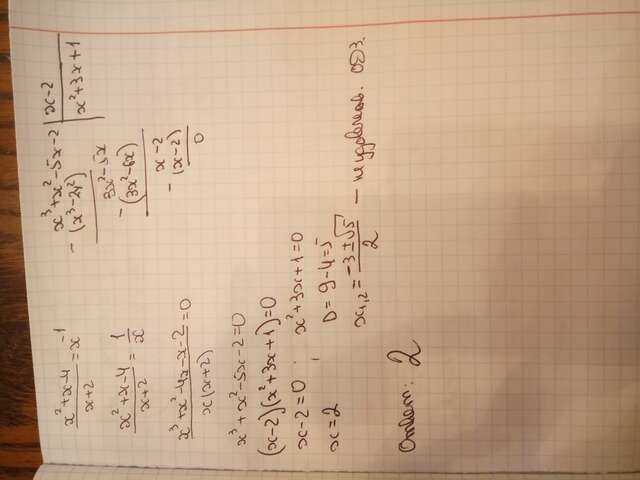 (x²+x-4)/(x+2) = x⁻¹
(x²+x-4)/(x+2) = 1/x
(x³+x²-4x-x-2)/(x(x+2)) = 0
x³+x²-5x-2=0
(x-2)(x²+3x+1)=0
x-2=0 ; x²+3x+1=0
x=2 D=9-4=5
x₁,₂ = (-3±√5)/2 — не удовлетв. ОДЗ.
Ответ: 2
x³+x²-5x-2 | x-2
-(x³-2x²) x²+3x+1
3x²-5x
-(3x²-6x)
x-2
-(x-2)
0